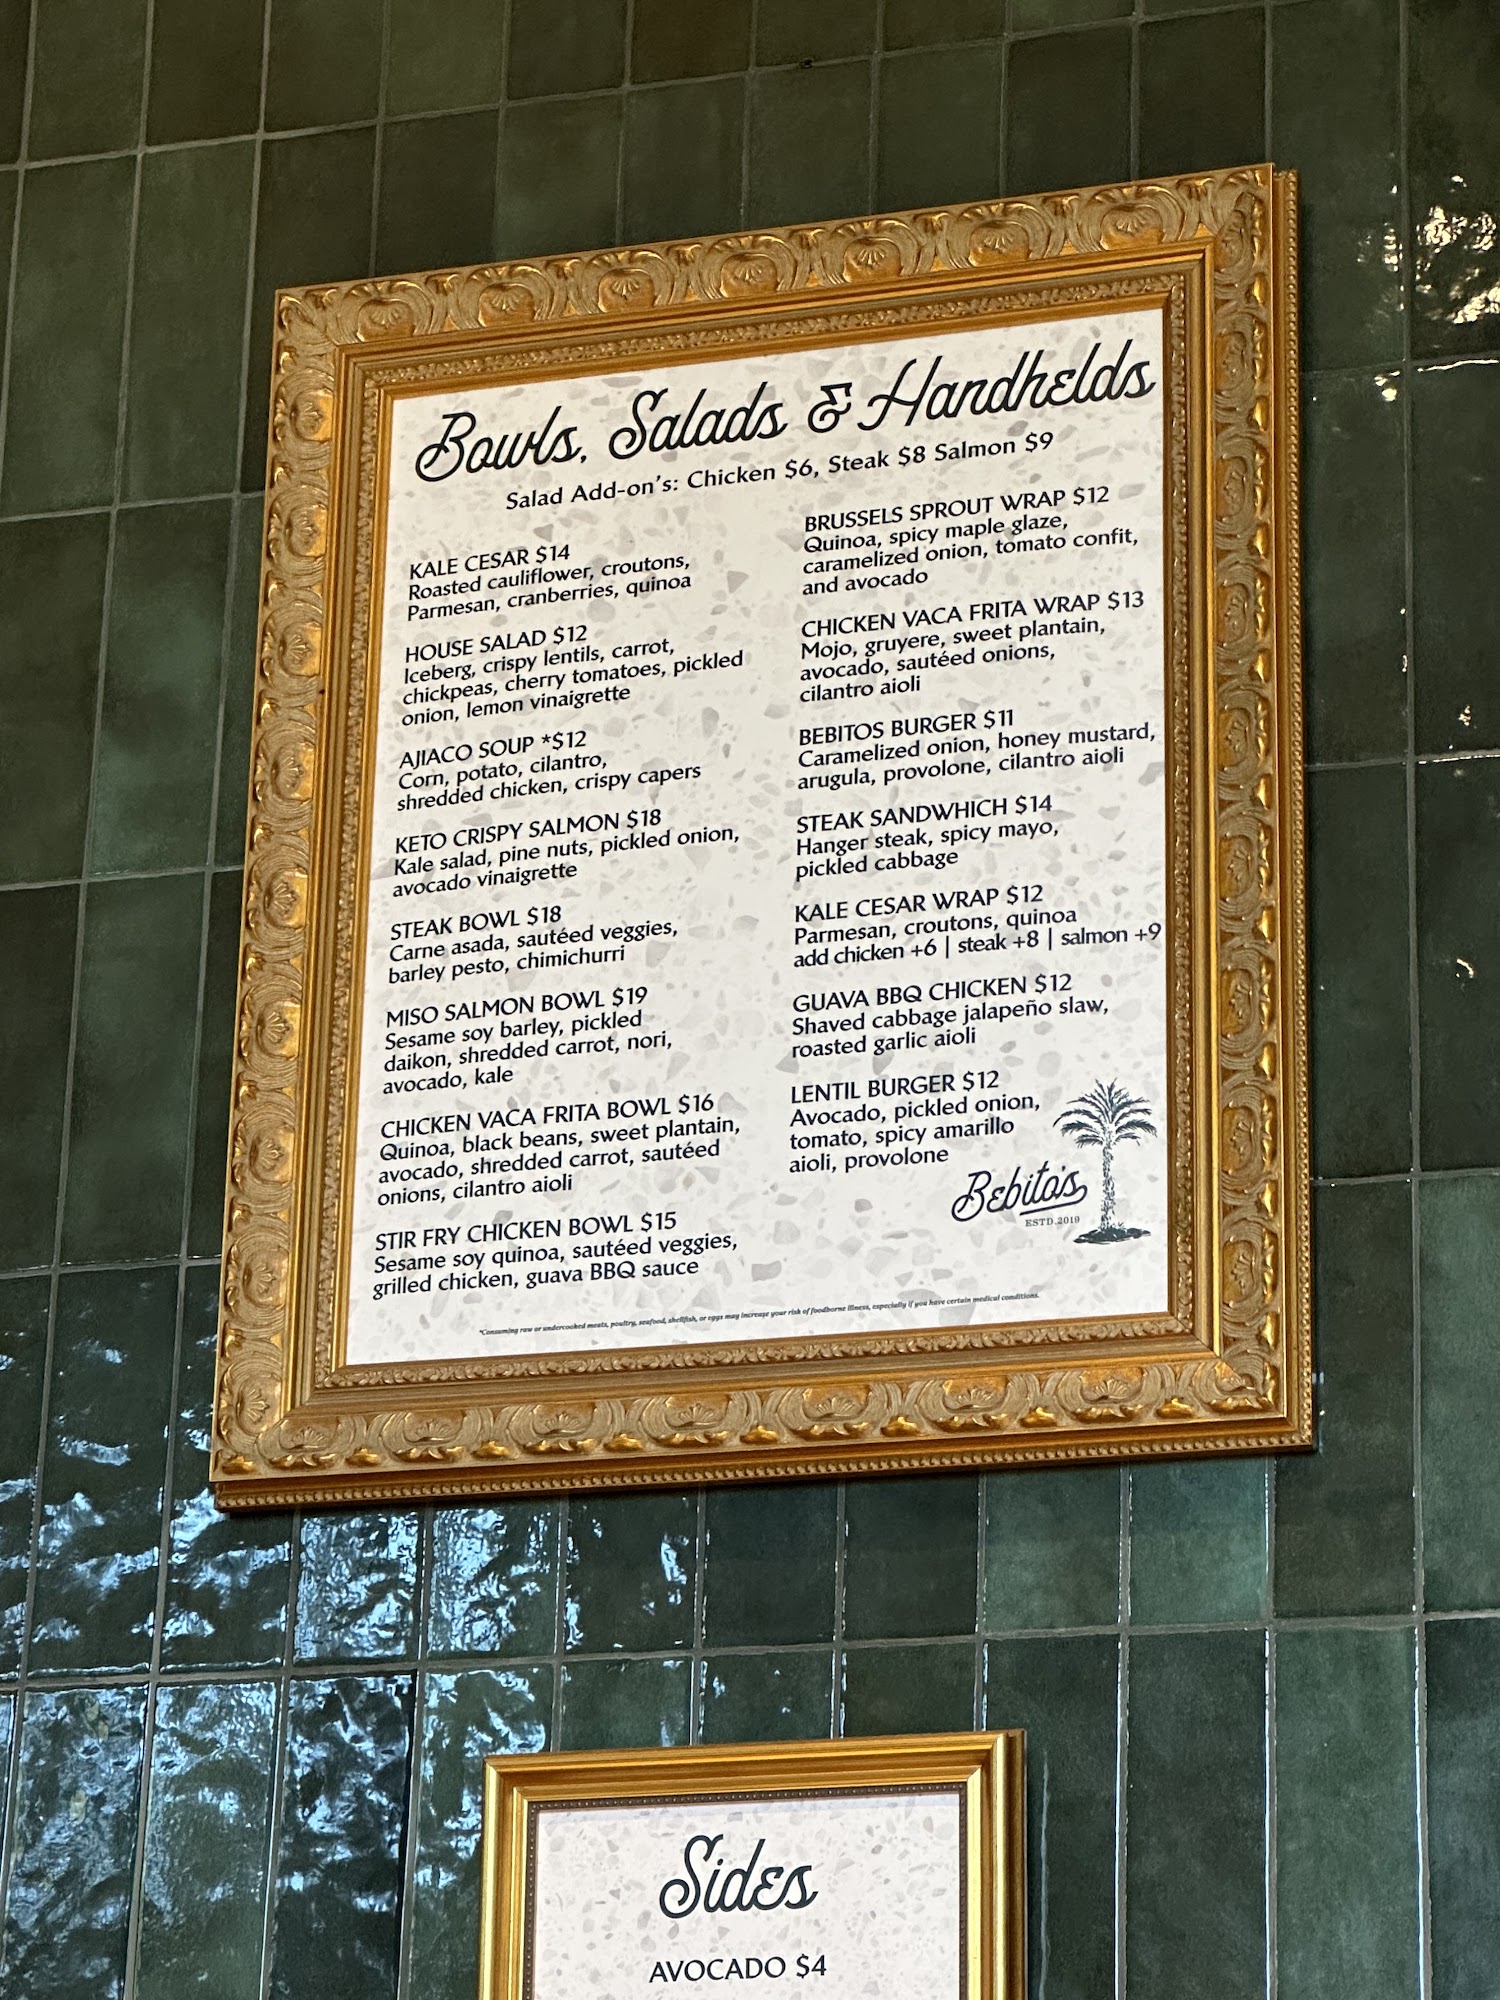 Bowls, Salads & Handhelds
Salad Add-on's: Chicken $6, Steak $8 Salmon $9
KALE CESAR $14
Roasted cauliflower, croutons,
Parmesan, cranberries, quinoa
HOUSE SALAD $12
Iceberg, crispy lentils, carrot,
chickpeas, cherry tomatoes, pickled
onion, lemon vinaigrette
AJIACO SOUP *$12
Corn, potato, cilantro,
shredded chicken, crispy capers
KETO CRISPY SALMON $18
Kale salad, pine nuts, pickled onion,
avocado vinaigrette
STEAK BOWL $18
Carne asada, sautéed veggies,
barley pesto, chimichurri
MISO SALMON BOWL $19
Sesame soy barley, pickled
daikon, shredded carrot, nori,
avocado, kale
CHICKEN VACA FRITA BOWL $16
Quinoa, black beans, sweet plantain,
avocado, shredded carrot, sautéed
onions, cilantro aioli
STIR FRY CHICKEN BOWL $15
Sesame soy quinoa, sautéed veggies,
grilled chicken, guava BBQ sauce
BRUSSELS SPROUT WRAP $12
Quinoa, spicy maple glaze,
caramelized onion, tomato confit,
and avocado
CHICKEN VACA FRITA WRAP $13
Mojo, gruyere, sweet plantain,
avocado, sautéed onions,
cilantro aioli
BEBITOS BURGER $11
Caramelized onion, honey mustard,
arugula, provolone, cilantro aioli
STEAK SANDWHICH $14
Hanger steak, spicy mayo,
pickled cabbage
KALE CESAR WRAP $12
Parmesan, croutons, quinoa
add chicken +6 | steak +8 | salmon +9
GUAVA BBQ CHICKEN $12
Shaved cabbage jalapeño slaw,
roasted garlic aioli
LENTIL BURGER $12
Avocado, pickled onion,
tomato, spicy amarillo
aioli, provolone
Bebito's
ESTD.2019
*Consuming raw or undercooked meats, poultry, seafood, shellfish, or eggs may increase your risk of foodborne illness, especially if you have certain medical conditions.
Sides
AVOCADO $4